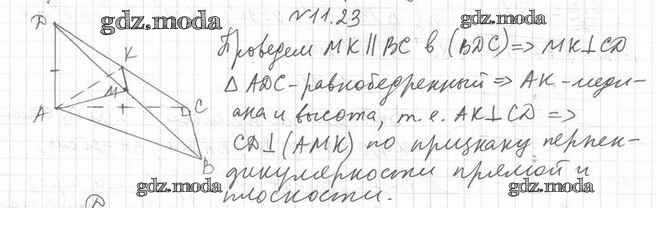 gdz.moda
№11.23
gdz.moda
D
Проведем MK∥BC в (BDC)=> MK⊥CD
K
△ ADC-равнобедренный => AK-меди-
M
A
C
ана и высота, т.е. AK⊥CD =>
CD⊥(AMK) по признаку перпен-
B
gdz.moda
дикулярности прямой и
gdz.moda
плоскости.